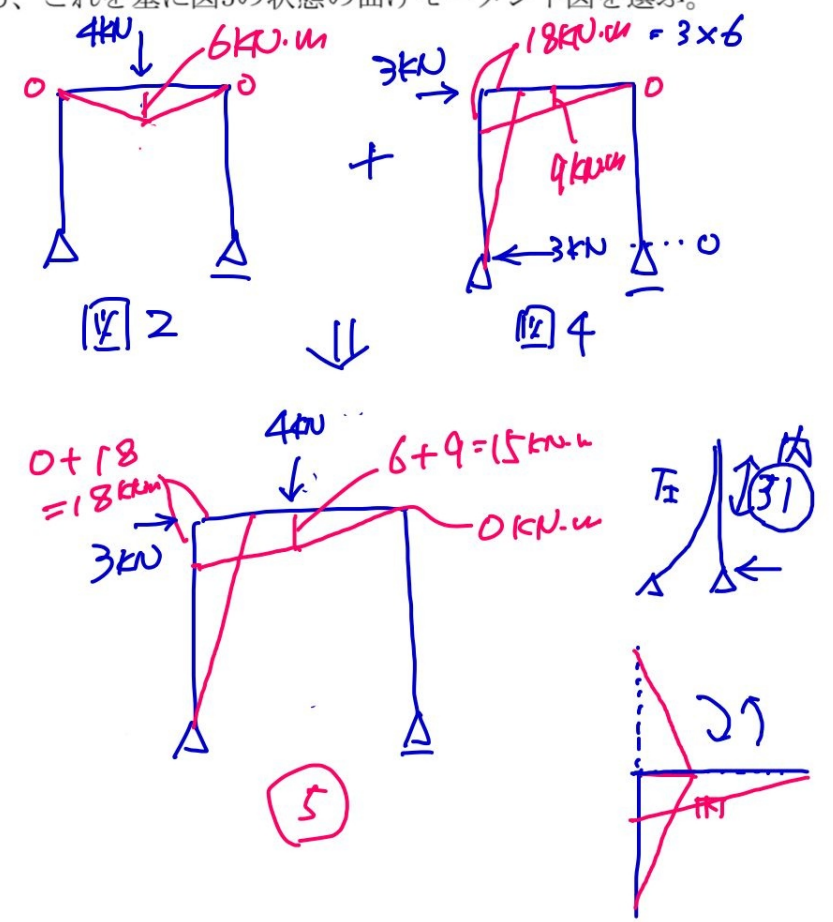 、これを基に図5の状態の曲げモーメント図を選ぶ。
4kN
6kN・m
0
0
+
3kN
18kN・m = 3×6
0
9kNm
3kN
・・0
図2
図4
⇓
4kN
0+18
=18kNm
6+9=15kN・m
3kN
0kN・m
5
内
引